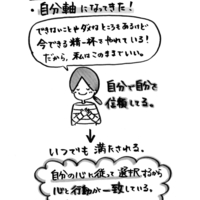 ・自分軸になってきた！
できないことやダメなところもあるけど
今できる精一杯でやれている！
だから、私はこのままでいい。
自分で自分を
信頼してる。
いつでも 満たされる。
自分の心に従って選択するから
心と行動が一致している。